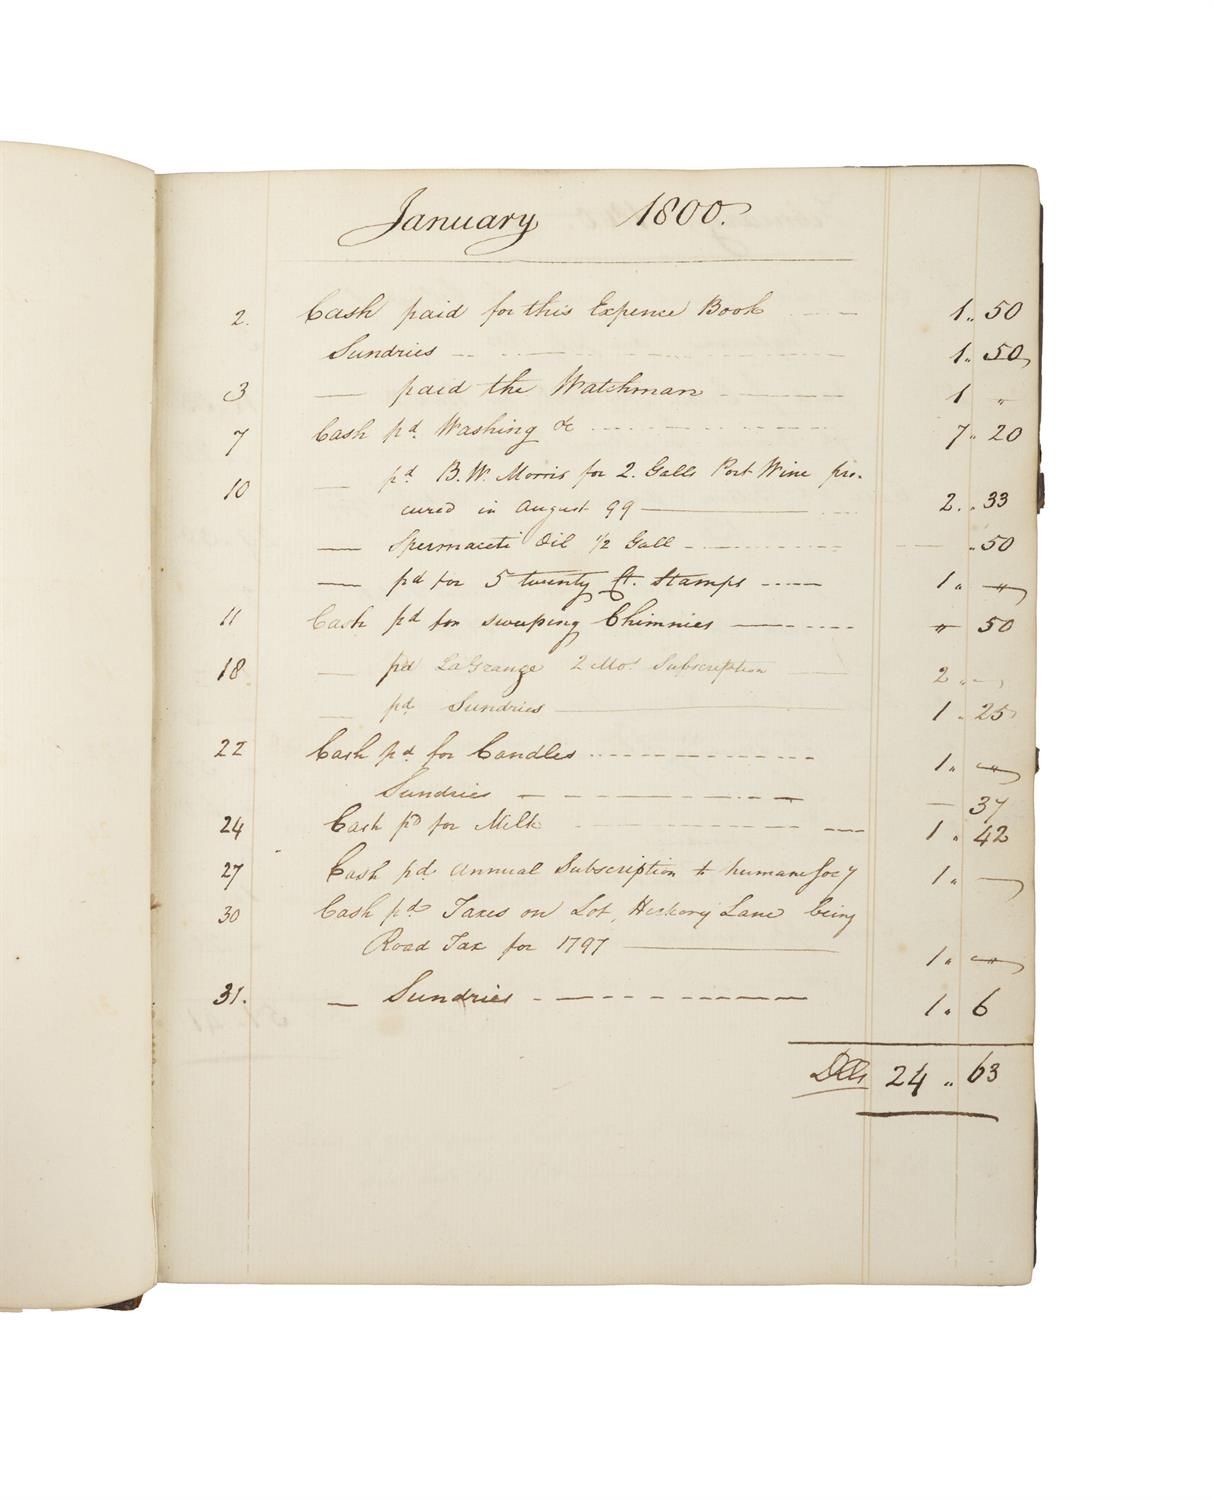 January 1800.
2. Cash paid for this Expence Book 1 " 50
Sundries 1 " 50
3 — paid the Watchman 1 "
7 Cash pd. Washing &c 7 " 20
10 — pd B.W. Morris for 2. Galls Port Wine pro-
cured in August 99 — 2 " 33
— Spermaceti Oil 1/2 Gall — " 50
— pd for 5 twenty Ct. Stamps 1 " "
11 Cash pd for sweeping Chimnies " 50
18 — pd LaGrange 2 Mos Subscription 2 " —
— pd Sundries 1 " 25
22 Cash pd for Candles 1 " "
Sundries — 37
24 Cash pd for Milk 1 " 42
27 Cash pd. Annual Subscription to humane Socy 1 " —
30 Cash pd Taxes on Lot, Hickory Lane being
Road Tax for 1797 — 1 " "
31. — Sundries 1 " 6
Dlls 24 " 63